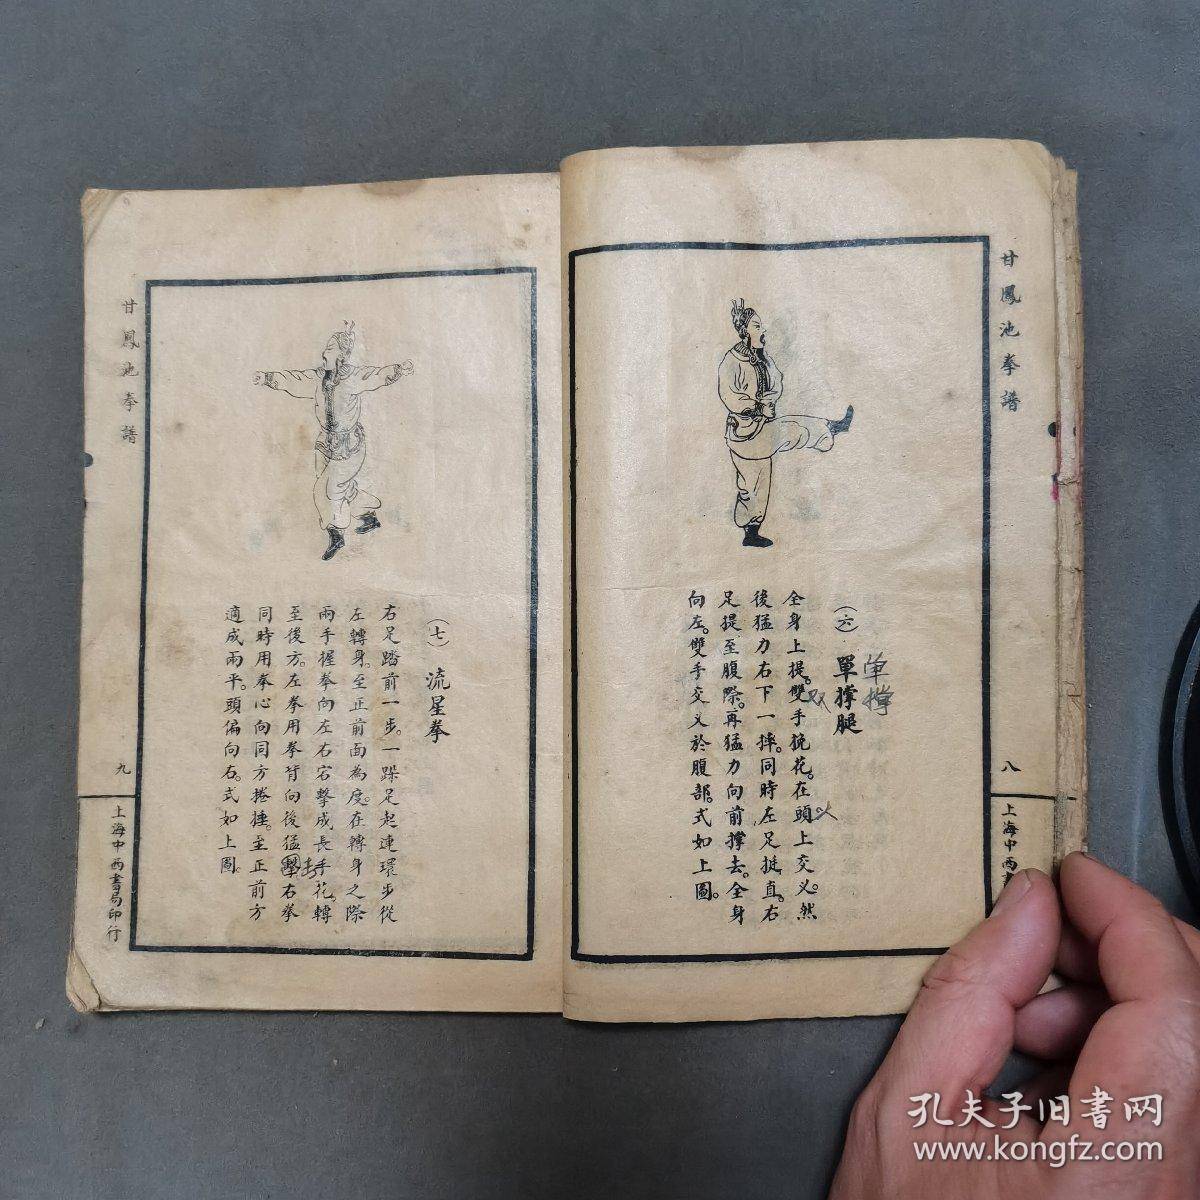 甘鳳池拳譜
八
上海中西書
(六) 單撐腿
单撐
全身上提。雙手挽花。在頭上交义。然
双
义
後猛力右下一摔。同時左足挺直。右
足提至腹際。再猛力向前撑去。全身
向左。雙手交义於腹部。式如上圖。
(七) 流星拳
右足踏前一步。一跺足起連環步從
左轉身。至正前面為度。在轉身之際
兩手握拳向左右宕擊成長手花。轉
至後方。左拳用拳背向後猛擊右拳
同時用拳心向同方捲捶。至正前方
適成兩平。頭偏向右。式如上圖。
甘鳳池拳譜
九
上海中西書局印行
孔夫子旧書网
www.kongfz.com